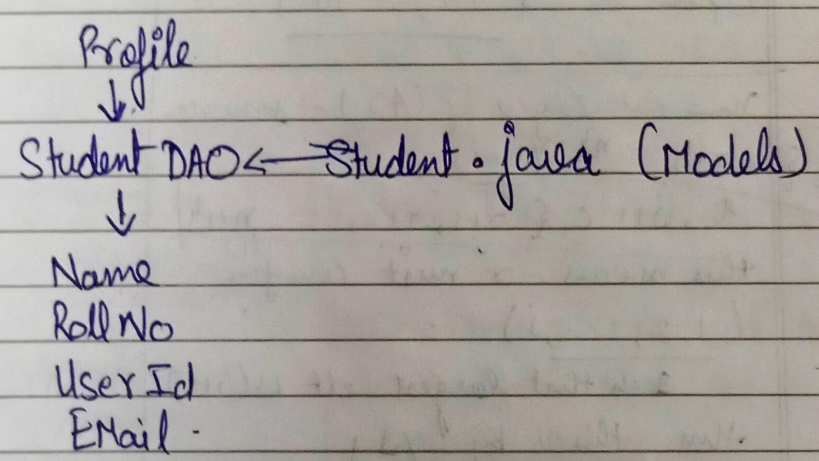 Profile
↓
Student DAO ← Student.java (Models)
↓
Name
Roll No
User Id
EMail